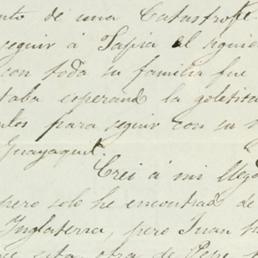 nto de una Catastrofe
seguir á Tapisa el siguie
con toda su familia fue
taba esperando la goletita
ulos para seguir con su
Guayaquil.
Crei á mi lleg
pero solo he encontrado de
Inglaterra, pero Juan h
esta otra de Pepe